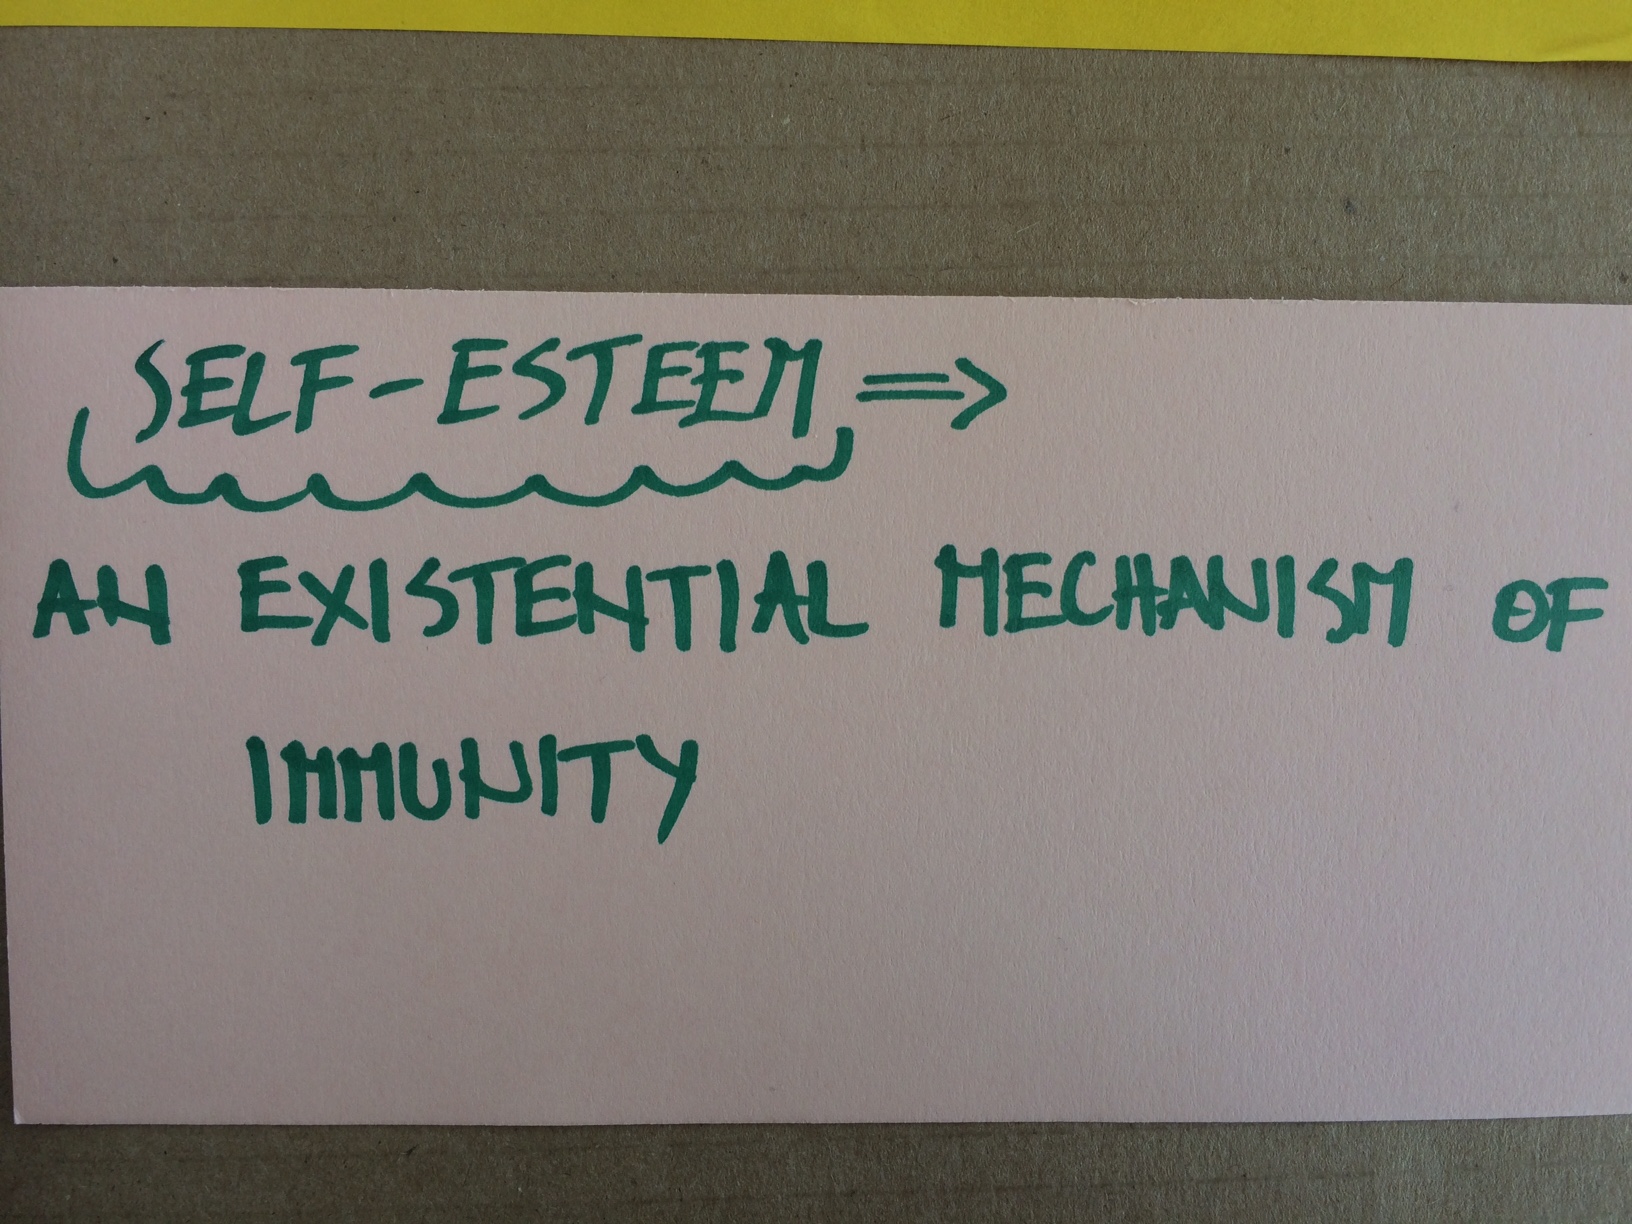 SELF-ESTEEM =>
AN EXISTENTIAL MECHANISM OF
IMMUNITY